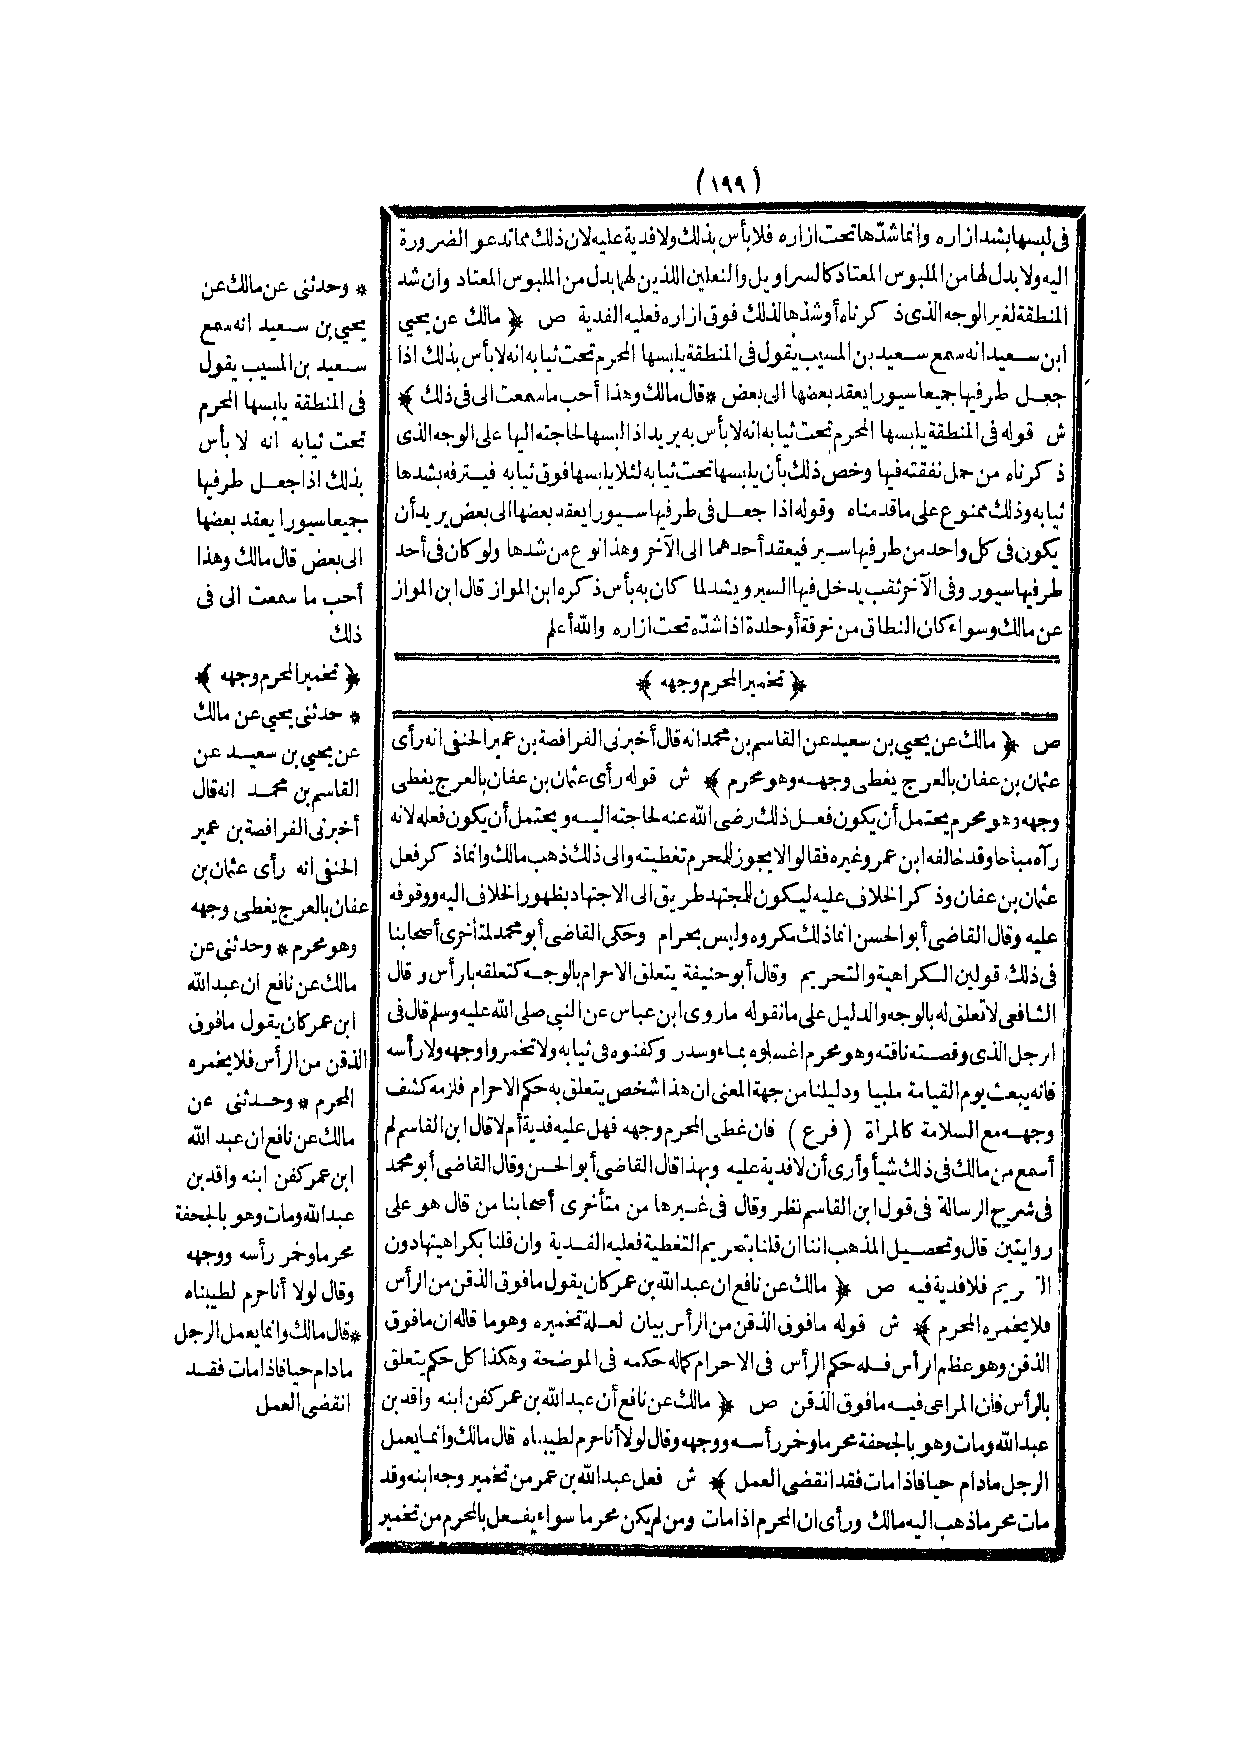 (١٩٩)
فى لبسها بشد ازاره وانما شدّها تحت ازاره فلا بأس بذلك ولا فدية عليه لان ذلك مما تدعو الضرورة
اليه ولا بدل لها من الملبوس المعتاد كالسراويل والنعلين اللذين لهما بدل من الملبوس المعتاد وان شد
المنطقة لغير الوجه الذى ذكرناه أو شدّها لذلك فوق ازاره فعليه الفدية ص ﴿ مالك عن يحيى
ابن سعيد انه سمع سعيد بن المسيب يقول فى المنطقة يلبسها المحرم تحت ثيابه انه لا بأس بذلك اذا
جعل طرفيها جميعا سيورا يعقد بعضها الى بعض * قال مالك وهذا أحب ما سمعت الى فى ذلك ﴾
ش قوله فى المنطقة يلبسها المحرم تحت ثيابه انه لا بأس به يريد اذا لبسها لحاجته اليها على الوجه الذى
ذكرناه من حمل نفقته فيها وخص ذلك بأن يلبسها تحت ثيابه لئلا يلبسها فوق ثيابه فيترفه بشدها
ثيابه وذلك ممنوع على ما قدمناه وقوله اذا جعل فى طرفيها سيورا يعقد بعضها الى بعض يريد أن
يكون فى كل واحد من طرفيها سير فيعقد أحدهما الى الآخر وهذا نوع من شدها ولو كان فى أحد
طرفيها سيور وفى الآخر ثقب يدخل فيها السير ويشد لما كان به بأس ذكره ابن المواز قال ابن المواز
عن مالك وسواء كان النطاق من خرقة أو جلدة اذا شدّه تحت ازاره والله أعلم
﴿ تخمير المحرم وجهه ﴾
ص ﴿ مالك عن يحيى بن سعيد عن القاسم بن محمد انه قال أخبرنى الفرافصة بن عمير الحنفى انه رأى
عثمان بن عفان بالعرج يغطى وجهه وهو محرم ﴾ ش قوله رأى عثمان بن عفان بالعرج يغطى
وجهه وهو محرم يحتمل أن يكون فعل ذلك رضى الله عنه لحاجته اليه ويحتمل أن يكون فعله لانه
رآه مباحا وقد خالفه ابن عمر وغيره فقالوا لا يجوز للمحرم تغطيته والى ذلك ذهب مالك وانما ذكر فعل
عثمان بن عفان وذكر الخلاف عليه ليكون للمجتهد طريق الى الاجتهاد بظهور الخلاف اليه ووقوفه
عليه وقال القاضى أبو الحسن انما ذلك مكروه وليس بحرام وحكى القاضى أبو محمد لمتأخرى أصحابنا
فى ذلك قولين الكراهية والتحريم وقال أبو حنيفة يتعلق الاحرام بالوجه كتعلقه بارأس وقال
الشافعى لا تعلق له بالوجه والدليل على ما نقوله ماروى ابن عباس عن النبى صلى الله عليه وسلم قال فى
ارجل الذى وقصته ناقته وهو محرم اغسلوه بماء وسدر وكفنوه فى ثيابه ولا تخمروا وجهه ولا رأسه
فانه يبعث يوم القيامة ملبيا ودليلنا من جهة المعنى ان هذا شخص يتعلق به حكم الاحرام فلزمه كشف
وجهه مع السلامة كالمرأة (فرع) فان غطى المحرم وجهه فهل عليه فدية أم لا قال ابن القاسم لم
أسمع من مالك فى ذلك شيأ وأرى أن لا فدية عليه وبهذا قال القاضى أبو الحسن وقال القاضى أبو محمد
فى شرح الرسالة فى قول ابن القاسم نظر وقال فى غيرها من متأخرى أصحابنا من قال هو على
روايتين قال وتحصيل المذهب اننا ان قلنا بتحريم التغطية فعليه الفدية وان قلنا بكراهيتها دون
التحريم فلا فدية فيه ص ﴿ مالك عن نافع ان عبد الله بن عمر كان يقول ما فوق الذقن من الرأس
فلا يخمره المحرم ﴾ ش قوله ما فوق الذقن من الرأس بيان لعلة تخميره وهو ما قاله ان ما فوق
الذقن وهو عظم الرأس فله حكم الرأس فى الاحرام كما له حكمه فى الموضحة وهكذا كل حكم يتعلق
بالرأس فان المراعى فيه ما فوق الذقن ص ﴿ مالك عن نافع أن عبد الله بن عمر كفن ابنه واقد بن
عبد الله ومات وهو بالجحفة محرما وخمر رأسه ووجهه وقال لولا أنا حرم لطيبناه قال مالك وانما يعمل
الرجل ما دام حيا فاذا مات فقد انقضى العمل ﴾ ش فعل عبد الله بن عمر من تخمير وجه ابنه وقد
مات محرما ذهب اليه مالك ورأى ان المحرم اذا مات ومن لم يكن محرما سواء يفعل بالمحرم من تخمير
* وحدثنى عن مالك عن
يحيى بن سعيد انه سمع
سعيد بن المسيب يقول
فى المنطقة يلبسها المحرم
تحت ثيابه انه لا بأس
بذلك اذا جعل طرفيها
جميعا سيورا يعقد بعضها
الى بعض قال مالك وهذا
أحب ما سمعت الى فى
ذلك
﴿ تخمير المحرم وجهه ﴾
* حدثنى يحيى عن مالك
عن يحيى بن سعيد عن
القاسم بن محمد انه قال
أخبرنى الفرافصة بن عمير
الحنفى انه رأى عثمان بن
عفان بالعرج يغطى وجهه
وهو محرم * وحدثنى عن
مالك عن نافع ان عبد الله
ابن عمر كان يقول ما فوق
الذقن من الرأس فلا يخمره
المحرم * وحدثنى عن
مالك عن نافع ان عبد الله
ابن عمر كفن ابنه واقد بن
عبد الله ومات وهو بالجحفة
محرما وخمر رأسه ووجهه
وقال لولا أنا حرم لطيبناه
* قال مالك وانما يعمل الرجل
ما دام حيا فاذا مات فقد
انقضى العمل